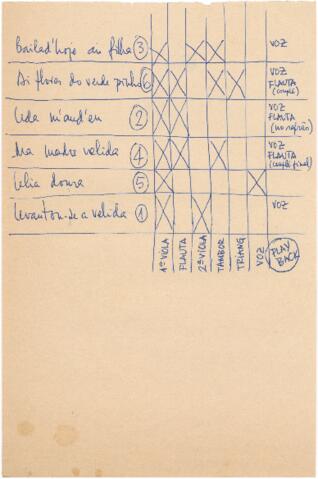 Bailad'hoje ai filha ③ VOZ
Ai flores do verde pinho ⑥ VOZ
FLAUTA
(coupla)
Leda m'and'eu ② VOZ
FLAUTA
(no refrão)
Ma madre velida ④ VOZ
FLAUTA
(coupla final)
Lelia doura ⑤
Levantou-se a velida ① VOZ
1ª VIOLA
FLAUTA
2ª VIOLA
TAMBOR
TRIANG
VOZ
PLAY
BACK